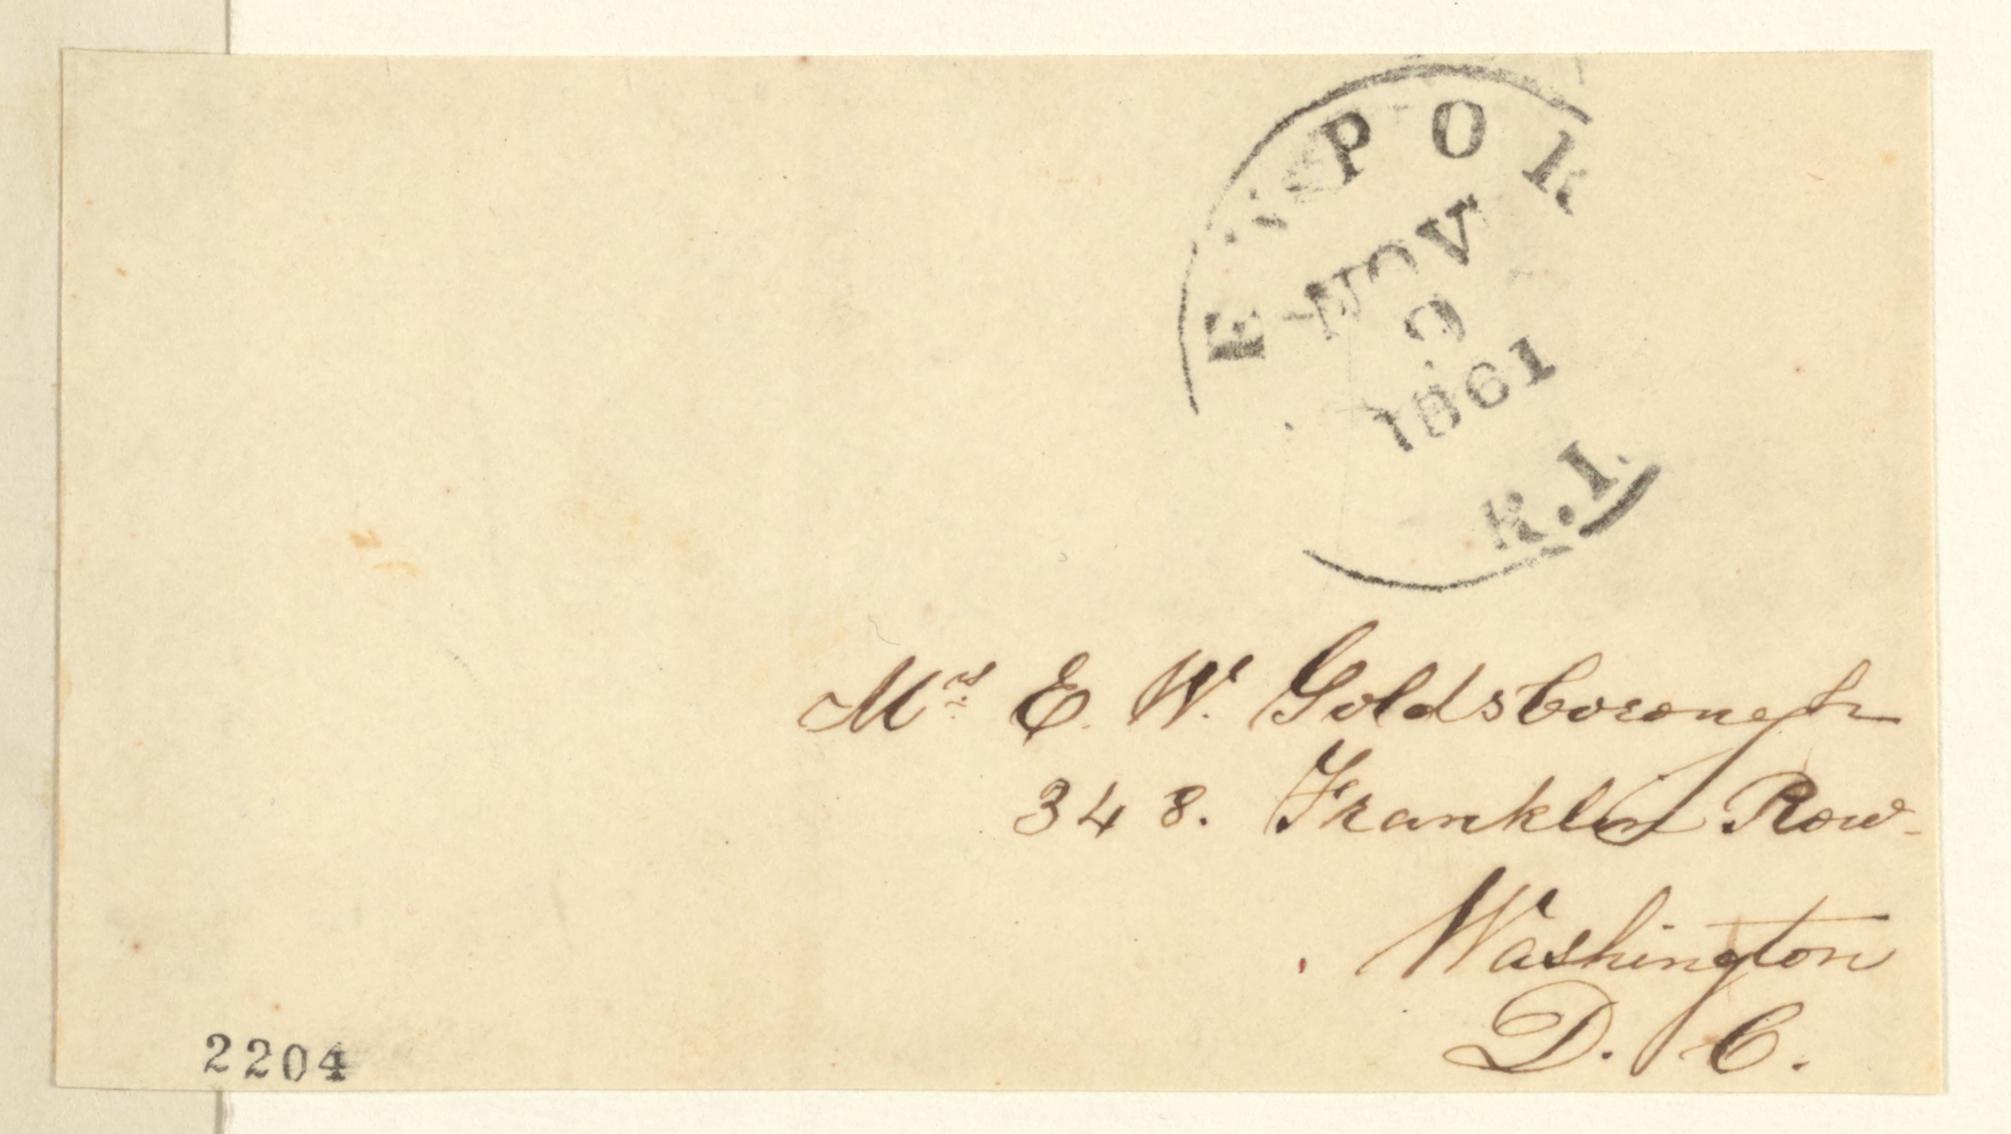 EWPOR
NOV
9
1861
R.I.
Mrs. E. W. Goldsborough
348. Franklin Row
Washington
D. C.
2204